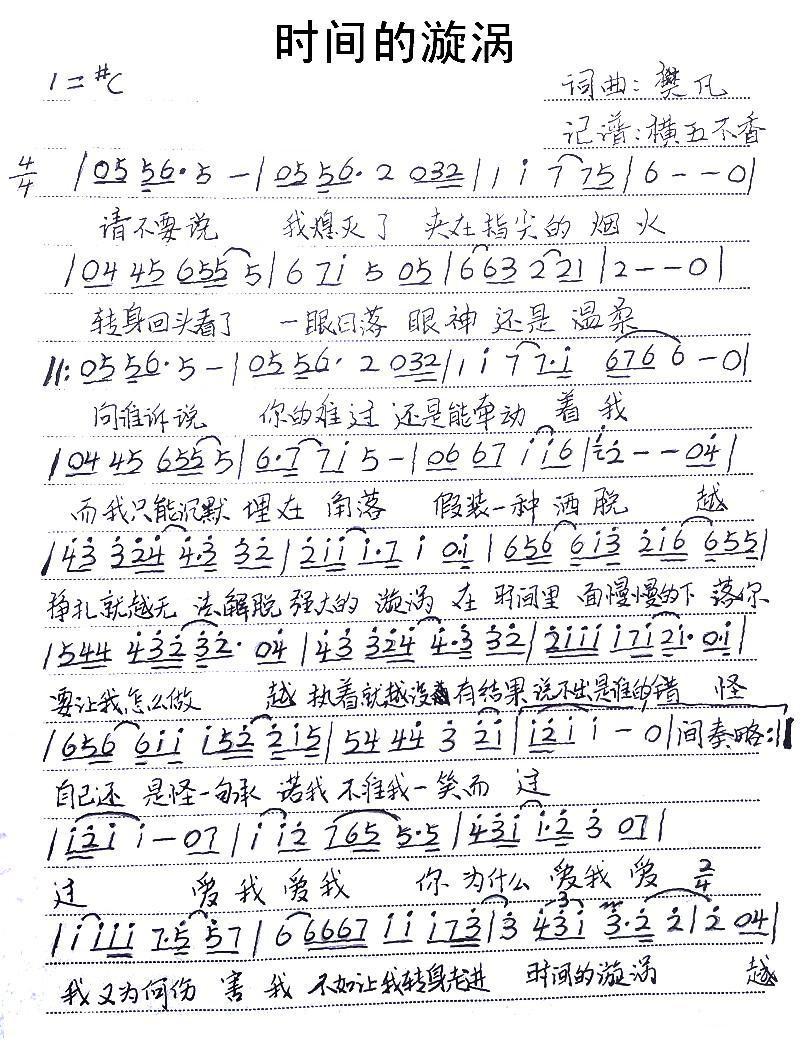 时间的漩涡
1=#C 词曲:樊凡
记谱:横五不香
4/4 |05 56·5-|05 56·2 032|1 i 7 775|6--0|
请不要说 我熄灭了 夹在指尖的 烟火
|04 45 655 5|6 7i 5 05|663 221|2--0|
转身回头看了 一眼日落 眼神 还是 温柔
||:05 56·5-|05 56·2 032|1 i 7 7·i 6766-0|
向谁诉说 你的难过 还是能牵动 着我
|04 45 655 5|6·7 7i 5-|06 67 i i6|2--04|
而我只能沉默 埋在 角落 假装一种 洒脱 越
|43 324 4·3 32|2ii i·7 i 0·i|656 6i3 2i6 655|
挣扎就越无 法解脱 强大的 漩涡 在 时间里 面慢慢的下 落你
|544 432 32·04|43 324 4·3 32|2iii i7i 2i·0·i|
要让我怎么做 越 执着就越没有结果 说不出是谁的错 怪
|656 6ii i52 2i5|54 44 3 2i|i2i i-0|间奏略:||
自己还 是怪一句承 诺我 不难我一笑而 过
|i2i i-07|i ii2 765 5·5|43i i·2 3 07|
过 爱我爱我 你为什么 爱我爱 2/4
|i iii 7·5 57|6 6667 ii i73|3 43i 3·2 2|2 04|
我又为何伤 害 我 不如让我转身走进 时间的漩涡 越